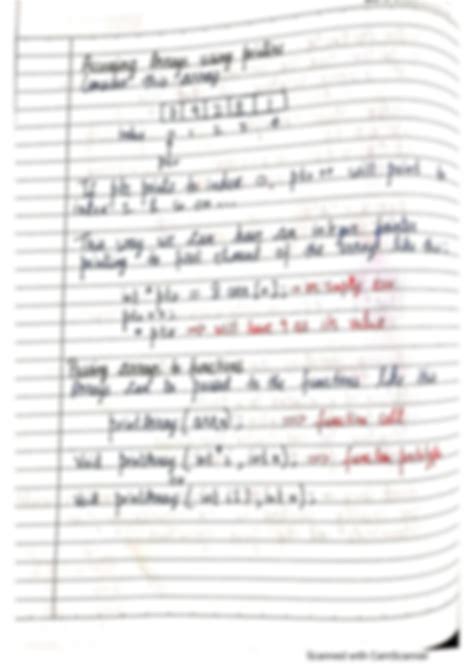 Accessing Arrays using pointers
Consider this array
index 0 1 2 3 4
ptr
If ptr points to index 0, ptr++ will point to
index 1 & so on...
This way we can have an integer pointer
pointing to first element of the array like this:
int *ptr = & arr[0]; => or simply arr
ptr++;
* ptr => will have 9 as its value
Passing arrays to functions
Arrays can be passed to the functions like this
printArray(arr, n); => function call
void printArray(int* i, int n); => function prototype
or
void printArray(int i[], int n);
Scanned with CamScanner